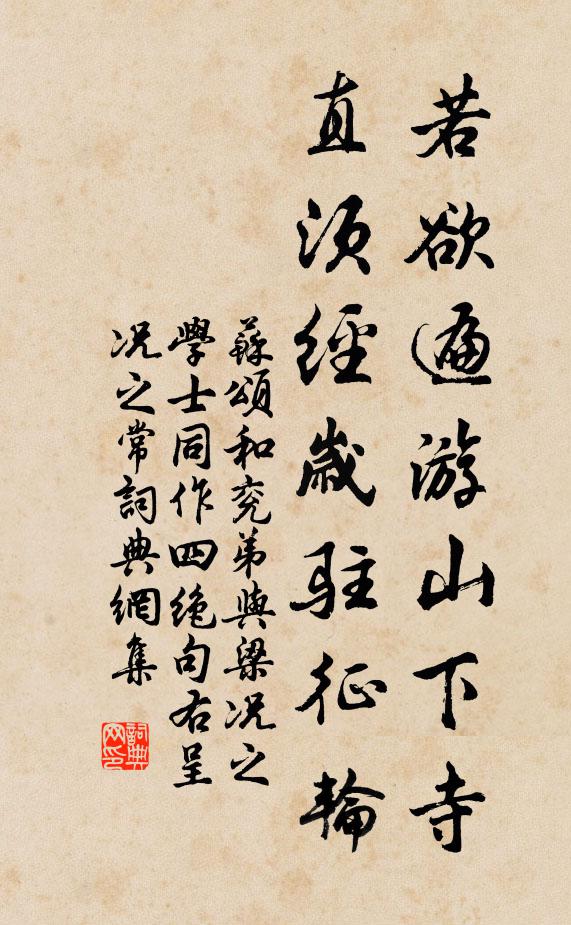 若欲遍游山下寺
直須經歲駐征輪
蘇頌和兖弟與梁况之
學士同作四絶句右呈
况之常詞典網集
詞典
网印